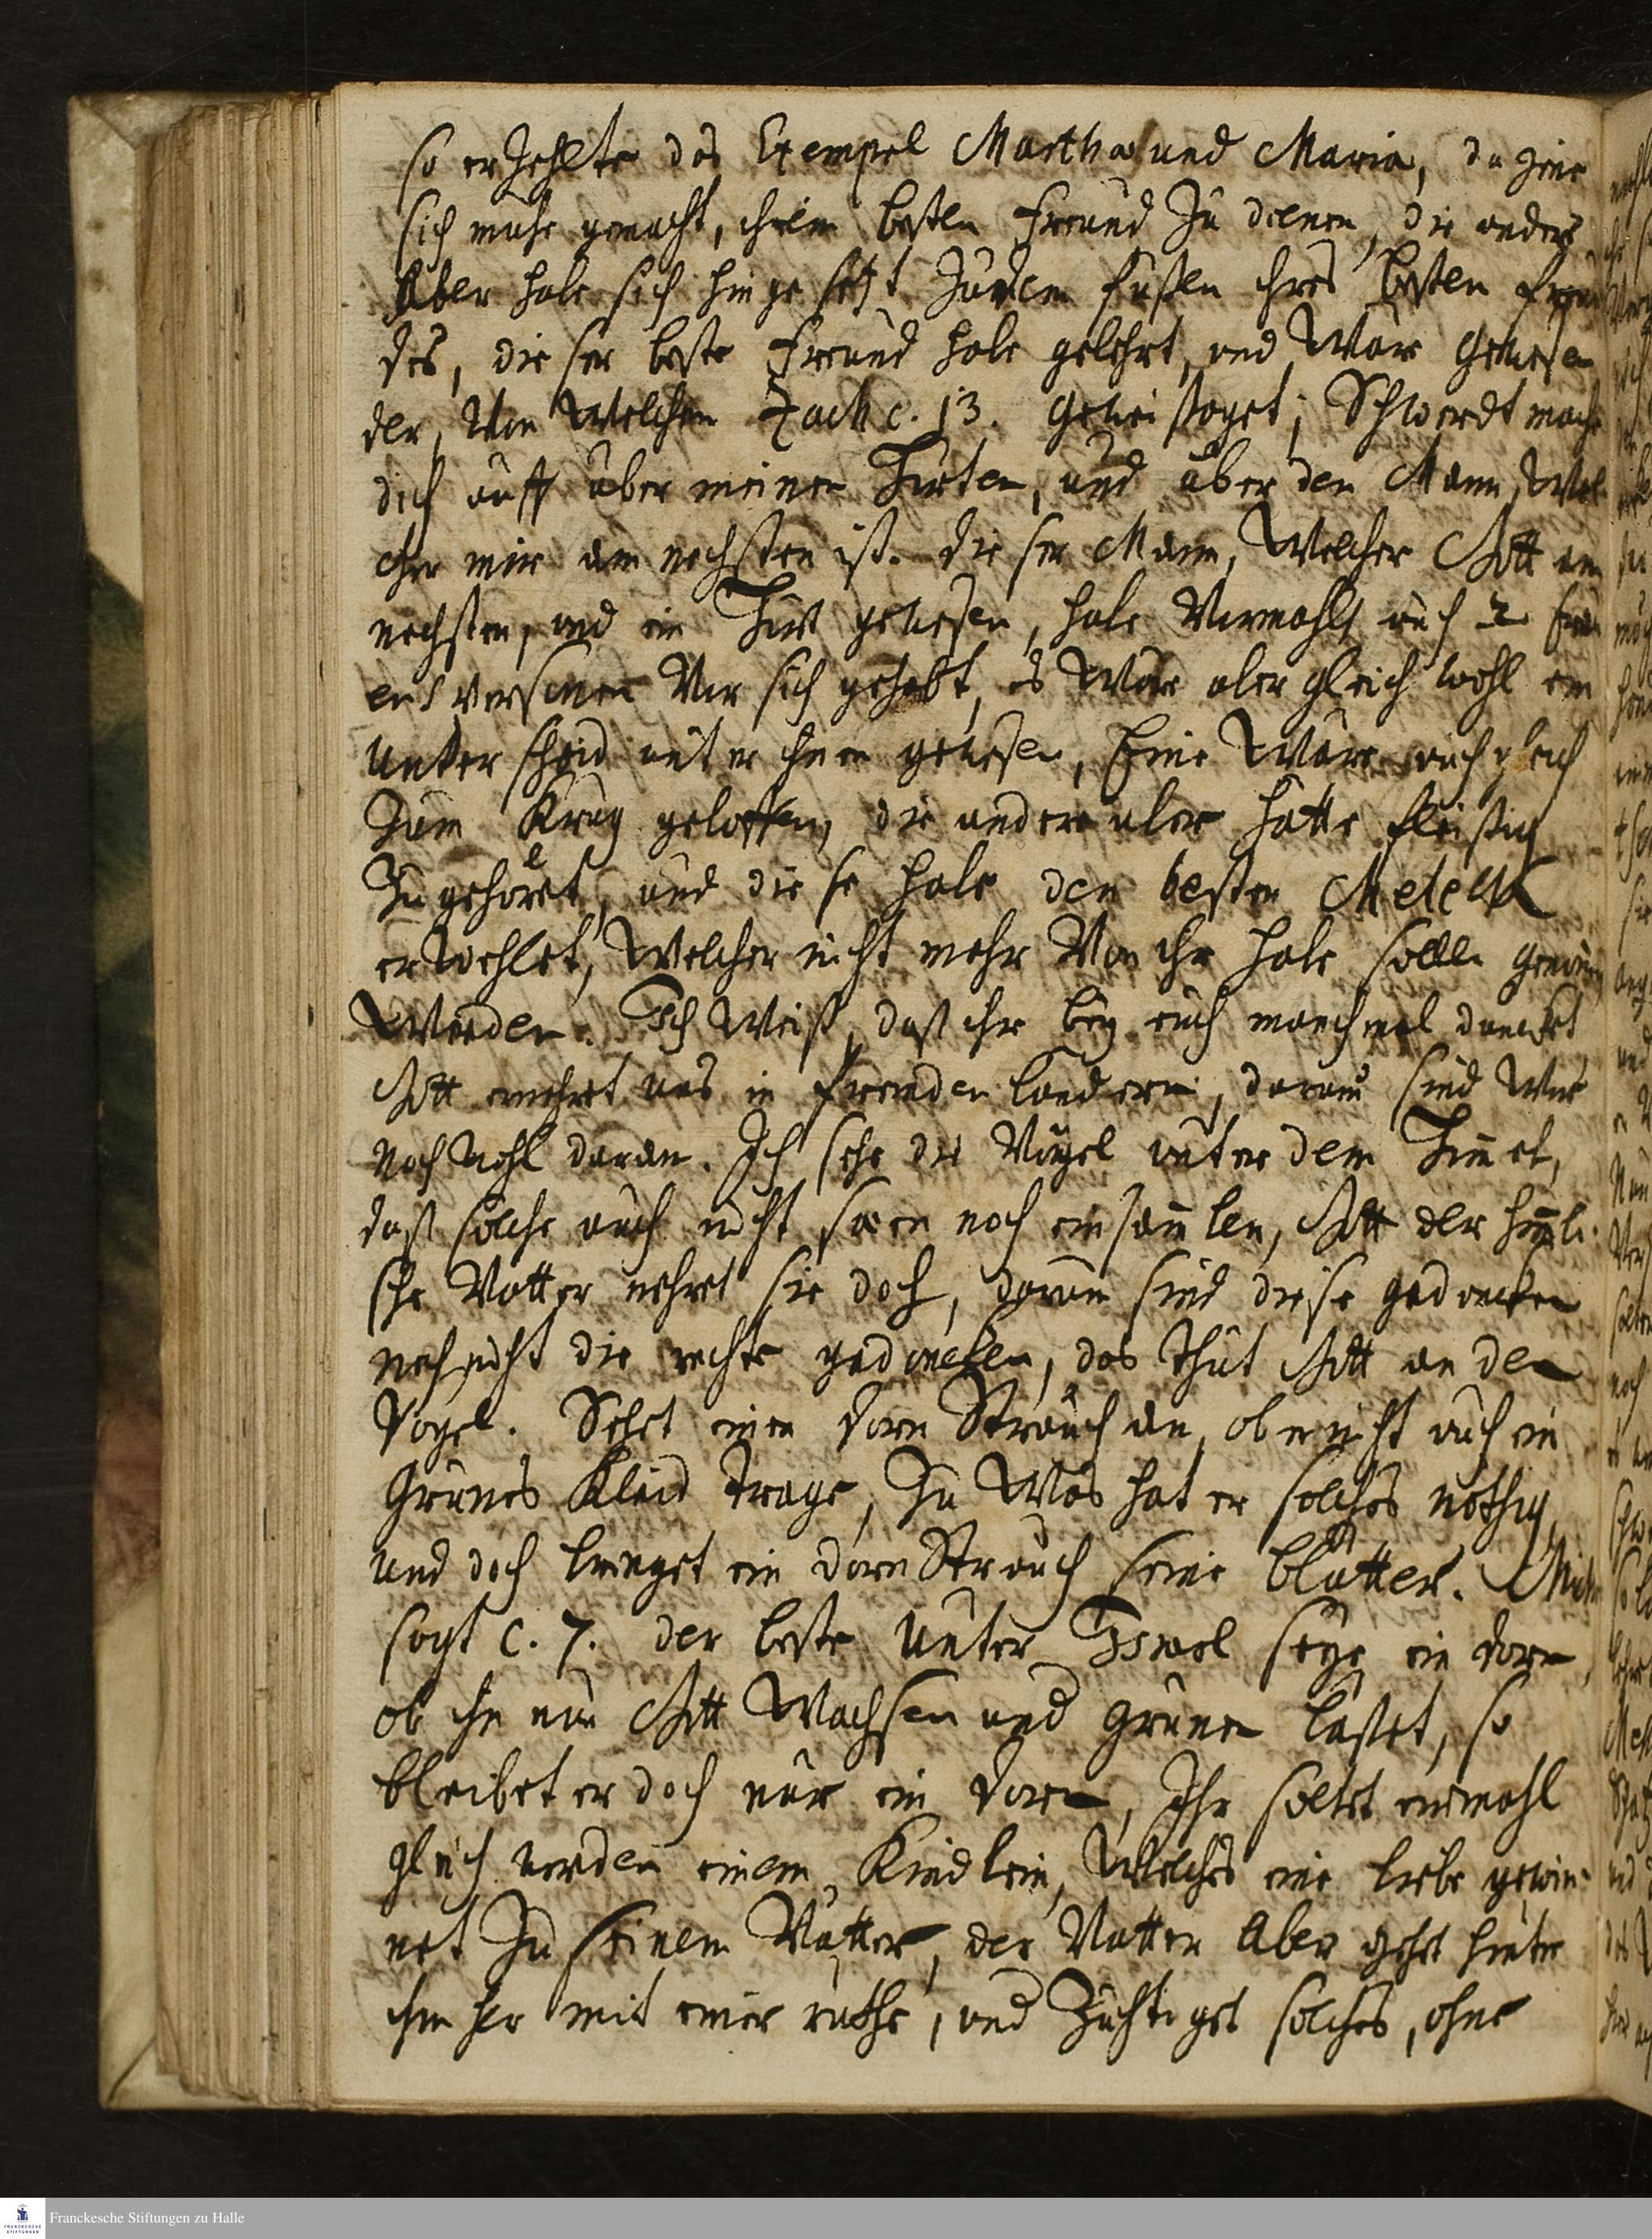 so erzehlte das Exempel Martha und Maria, da jene
sich mühe gemacht, ihrem besten Freund zu dienen, die andere
Aber habe sich hingesetzt zu den Füßen ihres besten Freun
des, dieser beste Freund habe gelehrt, und Wäre gewesen
der, Von Welchem Zach c. 13. geweissaget; Schwerdt mache
dich auff über meinen Hirten, und über den Mann, Wel
cher mir am nechsten ist. dieser Mann, Welcher Gott am
nechsten, und ein Hirt gewesen, habe Vormahls auch 2
Vor sich gehabt, es Wäre aber gleichwohl ein
unterscheid unter ihnen gewesen, Eine Wäre auch gleich
zum Krug geloffen, die andere aber hatte fleißig
zugehöret, und diese habe den besten Melech
erwehlet, Welcher nicht mehr Von ihr habe sollen genom
Werden. Ich Weiß, daß ihr bey euch manchmal dencket
Gott ernehret uns in frembden landern, darum sind Wir
noch wohl daran. Ich sehe die Vögel unter dem Himel,
daß solche auch nicht säen noch einsamlen, Gott der himli-
sche Vatter nehret sie doch, darum sind diese gedancken
noch nicht die rechte gedancken, das thut Gott an den
Vögel. Sehet einen dorn Strauch an, ob er nicht auch ein
Grünes Kleid trage, zu Was hat er solches nöthig,
und doch bringet ein dornStrauch seine blätter. Micha
sagt c. 7. der beste unter Israel seye ein dorn,
ob ihn nun Gott Wachsen und grünen lasset, so
bleibet er doch nur ein dorn, Ihr soltet einmahl
gleich werden einem Kindlein, Welches eine liebe gewin-
net zu seinem Vatter, der Vatter aber gehet hinter
ihm her mit einer ruthe, und züchtiget solches, ohne
Franckesche Stiftungen zu Halle